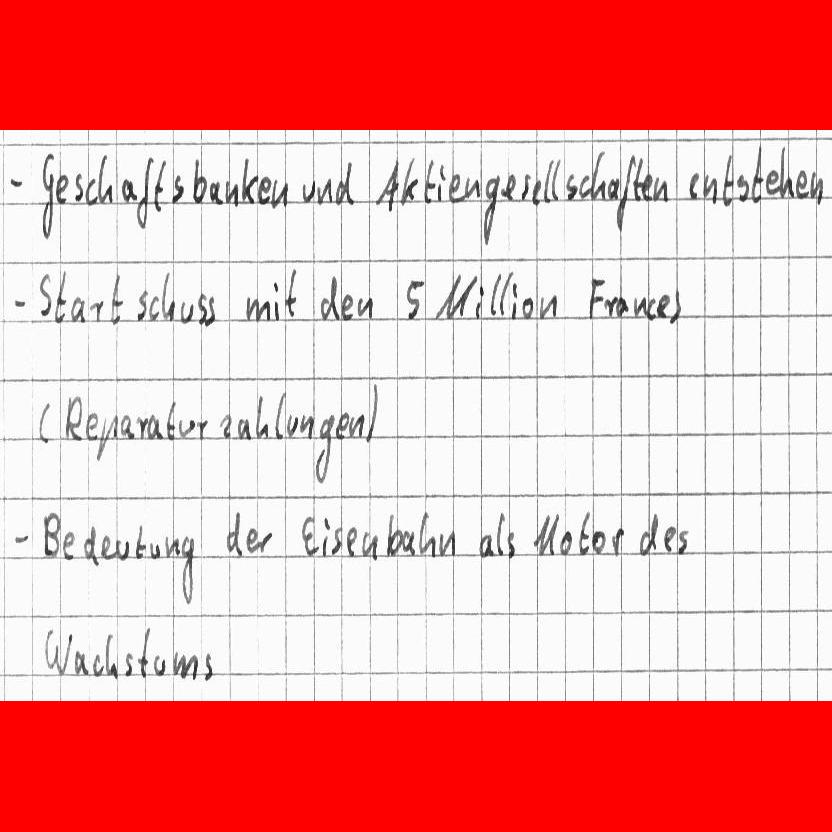 - Geschaftsbanken und Aktiengesellschaften entstehen
- Startschuss mit den 5 Million Frances
(Reparaturzahlungen)
- Bedeutung der Eisenbahn als Motor des
Wachstums